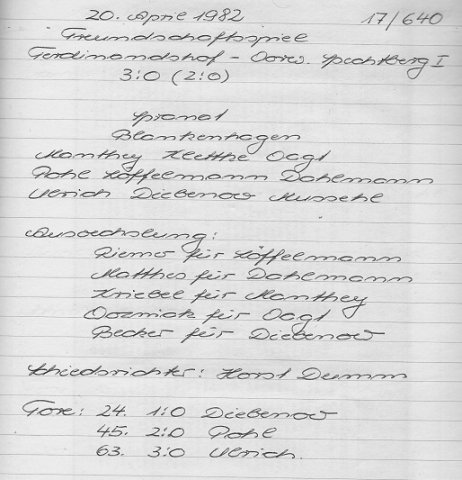 20. April 1982 17/640
Freundschaftsspiel
Ferdinandshof - Vorw. Spechtberg I
3:0 (2:0)
Spranat
Blankenhagen
Manthey Kletthe Vagt
Pohl Löffelmann Dahlmann
Ulrich Diebenow Mussehl
Auswechslung:
Riemer für Löffelmann
Matthes für Dahlmann
Kriebel für Manthey
Wozniak für Vagt
Becker für Diebenow
Schiedsrichter: Horst Dumm
Tore: 24. 1:0 Diebenow
45. 2:0 Pohl
63. 3:0 Ulrich.